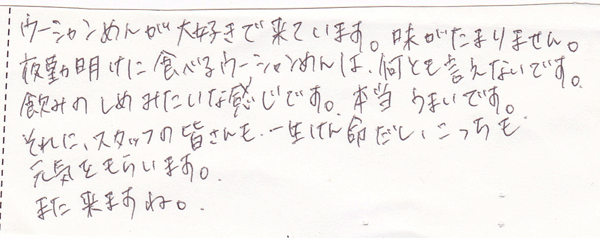 ウーシャンめんが大好きで来ています。味がたまりません。
夜勤明けに食べるウーシャンめんは、何とも言えないです。
飲みのしめみたいな感じです。本当うまいです。
それに、スタッフの皆さんも、一生けん命だし、こっちも
元気をもらいます。
また来ますね。